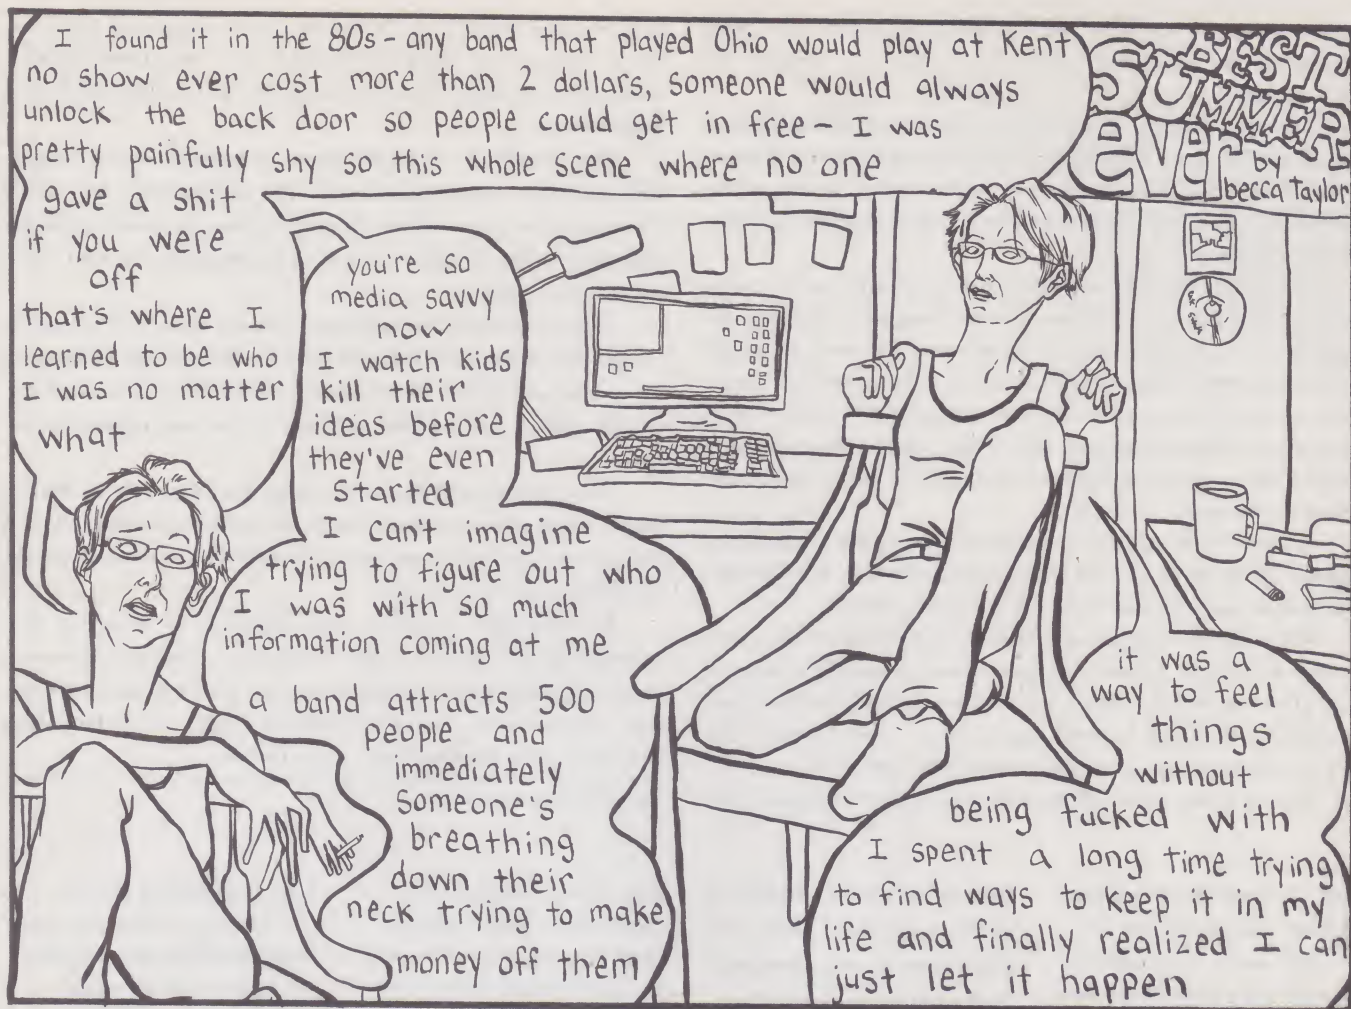 BEST
SUMMER
ever
by
becca taylor
I found it in the 80s - any band that played Ohio would play at Kent
no show ever cost more than 2 dollars, someone would always
unlock the back door so people could get in free - I was
pretty painfully shy so this whole scene where no one
gave a shit
if you were
off
that's where I
learned to be who
I was no matter
what
you're so
media savvy
now
I watch kids
kill their
ideas before
they've even
started
I can't imagine
trying to figure out who
I was with so much
information coming at me
a band attracts 500
people and
immediately
someone's
breathing
down their
neck trying to make
money off them
it was a
way to feel
things
without
being fucked with
I spent a long time trying
to find ways to keep it in my
life and finally realized I can
just let it happen